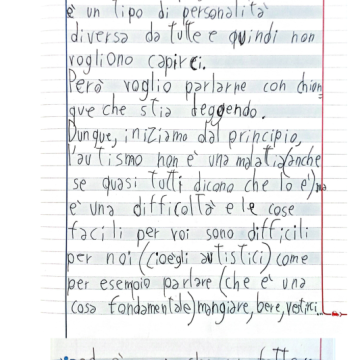 è un tipo di personalità
diversa da tutte e quindi non
vogliono capirci.
Però voglio parlarne con chiun=
que che stia leggendo.
Dunque, iniziamo dal principio,
l'autismo non è una malattia (anche
se quasi tutti dicono che lo è) ma
è una difficoltà e le cose
facili per voi sono difficili
per noi (cioè gli autistici) come
per esempio parlare (che è una
cosa fondamentale) mangiare, bere, vestirci..